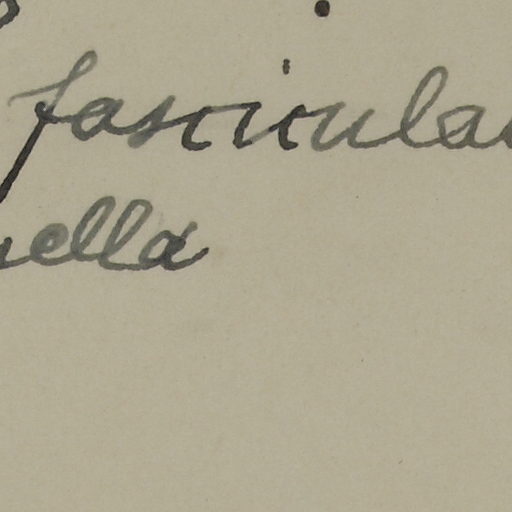 fascicula
ella